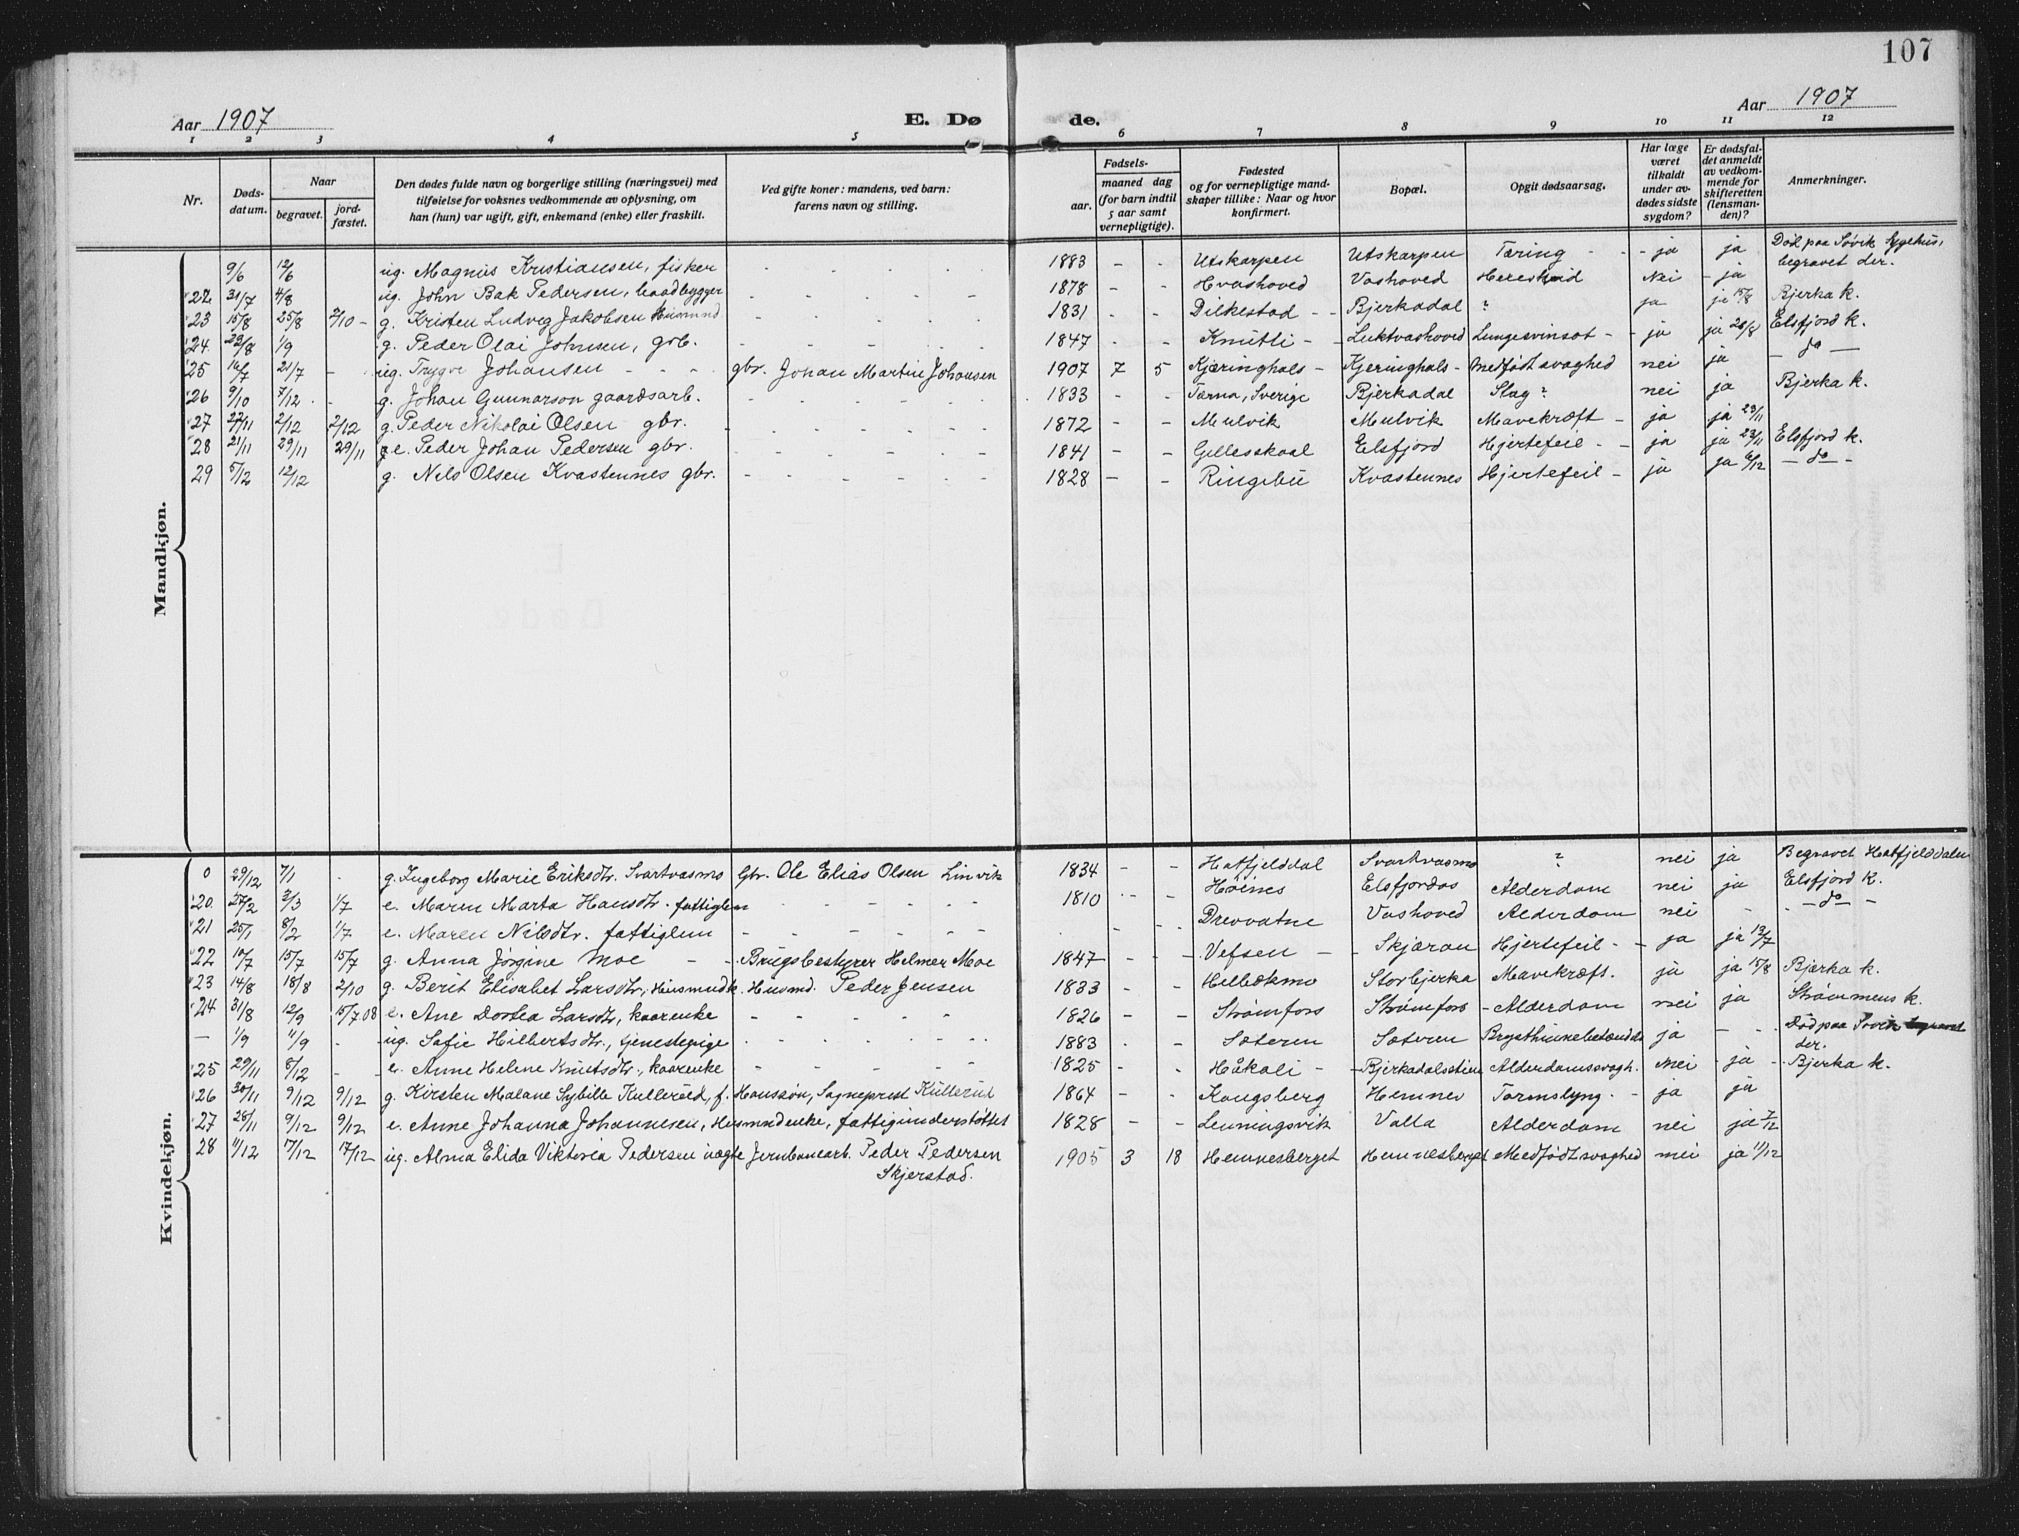 107
Aar 1907
E. Dø
de.
Aar 1907
1 2 3 4 5 6 7 8 9 10 11 12
Nr.
Døds-
datum.
Naar
begravet.
jord-
fæstet.
Den dødes fulde navn og borgerlige stilling (næringsvei) med
tilføielse for voksnes vedkommende av oplysning, om
han (hun) var ugift, gift, enkemand (enke) eller fraskilt.
Ved gifte koner: mandens, ved barn:
farens navn og stilling.
Fødsels-
aar.
maaned dag
(for barn indtil
5 aar samt
vernepligtige).
Fødested
og for vernepligtige mand-
skaper tillike: Naar og hvor
konfirmert.
Bopæl.
Opgit dødsaarsag.
Har læge
været
tilkaldt
under av-
dødes sidste
sygdom?
Er dødsfal-
det anmeldt
av vedkom-
mende for
skifteretten
(lensman-
den)?
Anmerkninger.
Mandkjøn.
9/6 12/6 ug. Magnus Kristiansen, fisker - - - - - 1883 - - Utskarpen Utskarpen Tæring - - ja ja Død paa Søvik Sygehus, begravet der.
22 31/7 4/8 ug. John Bak Pedersen, baadbygger - - - - - 1878 - - Hvashoved Vashoved Nei - ja
23 15/8 25/8 2/10 - g. Kristen Ludvig Jakobsen Husmnd - - - - - 1831 - - Dilkestad - - Bjerkadal ? ja ja 15/8 Bjerka k.
24 28/8 1/9 g. Peder Olai Johnsen, grb. - - - - 1847 - - Knutli - - Luktvashoved Lungesvinsot - - ja ja 28/8 Elsfjord k.
25 16/7 21/7 - ug. Trygve Johansen - - - gbr. Johan Martin Johansen 1907 7 5 Kjæringhals - Kjeringhals - Medfødt svaghed nei ja - do -
26 9/10 7/12 - - g. Johan Gunnarson gaardsarb. - - - - - 1833 - - Tærna, Sverige Bjerkadal Slag ? nei ja Bjerka k.
27 27/11 2/12 2/12 g. Peder Nikolai Olsen gbr. - - - - - 1872 - - Mulvik Mulvik Mavekræft - ja ja 29/11
28 21/11 29/11 29/11 e. Peder Johan Pedersen gbr. - - - - - 1841 - - Gillesskaal Elsfjord Hjertefeil - - ja ja 23/11 Elsfjord k.
29 5/12 12/12 g. Nils Olsen Kvastennes gbr. - - - - - 1828 - - Ringebu Kvastennes Hjertefeil - ja ja 6/12 - do -
Kvindekjøn.
0 29/12 7/1 - g. Ingeborg Marie Eriksdtr. Svartvasmo Gbr. Ole Elias Olsen Linvik 1834 - - Hatfjelddal Svartvasmo ? nei ja Begravet Hatfjelddalen
20 27/2 3/3 1/7 e. Maren Marta Hansdtr. fattiglem - - - - 1810 - - Høines Elsfjordos Alderdom nei ja Elsfjord k.
21 25/1 8/2 1/7 e. Maren Nilsdtr. fattiglem - - - - - - - Drevvatne Vashoved Alderdom nei - - do -
22 10/7 15/7 15/7 g. Anna Jørgine Moe - - Brugsbestyrer Helmer Moe 1847 - - - Vefsen - - Skjæran Hjertefeil - - ja ja 12/7
23 14/8 18/8 2/10 g. Berit Elisabet Larsdtr., Husmndk. Husmd. Peder Jensen 1833 - - Helbækmo Storbjerka Mavekræft. ja ja 15/8 Bjærka k.
24 31/8 12/9 15/7 08 e. Ane Dortea Larsdtr, kaarenke - - - - - 1826 - - Strømfors Strømfors - Alderdom nei ja Strømmens k.
- 1/9 11/9 - ug. Sofie Hilbertsdtr., tjenestepige - - - - - 1883 - - Sæteren Sæteren Brysthinnebetændelse ja - - Død paa Søvik begravet der.
25 29/11 8/12 - - e. Anne Helene Knutsdtr., kaarenke - - - - - 1825 - - Håkali - - Bjerkadalsstien Alderdomssvagh. Nei - ja - Bjerka k.
26 30/11 9/12 9/12 g. Kirsten Malane Sybille Kullerud, f. Hanssøn, Sogneprest Kullerud 1864 - - Kongsberg Hemnes Tarmslyng. - ja ja
27 28/11 9/12 9/12 e. Anne Johanna Johannesen, Husmndenke, fattigunderstøttet 1828 - - Leiningsvik Valla Alderdom nei ja 7/12
28 11/12 17/12 17/12 ug. Alma Elida Viktoria Pedersen uægte Jernbanearb. Peder Pedersen Skjerstad. 1905 3 18 Hemnesberget Hemnesberget Medfødt svaghed nei ja 11/12